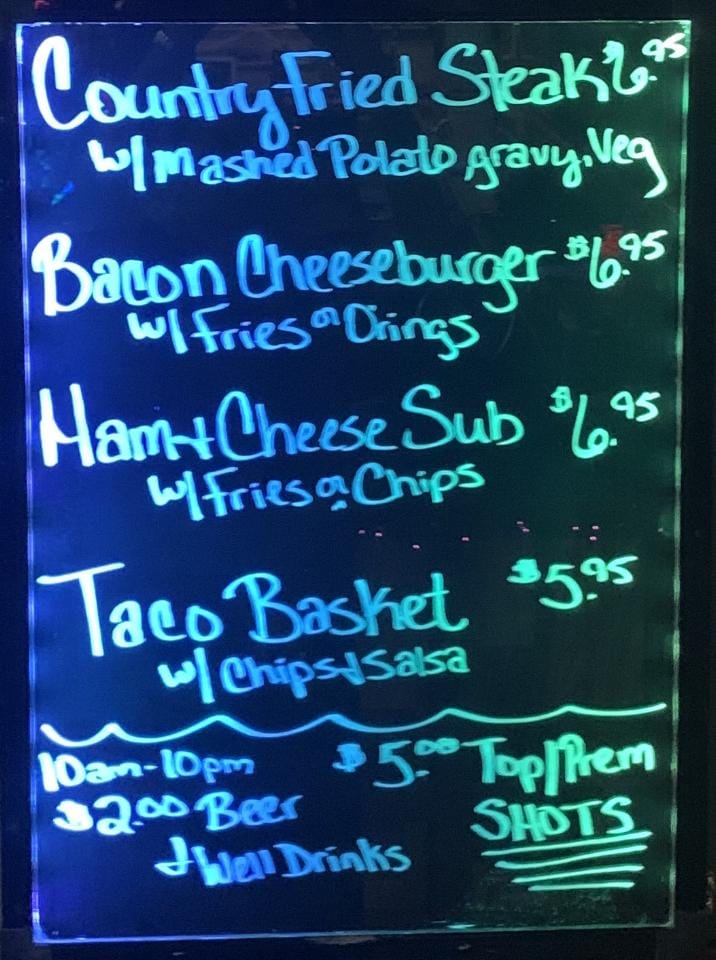 Country Fried Steak $6.95
w/ Mashed Potato gravy, Veg
Bacon Cheeseburger $6.95
w/ Fries or Orings
Ham + Cheese Sub $6.95
w/ Fries or Chips
Taco Basket $5.95
w/ Chips + Salsa
10am-10pm $5.00 Top/Prem
$2.00 Beer SHOTS
+ Well Drinks